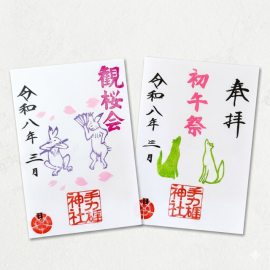 観桜会
令和八年三月
手力雄
神社
奉拝
初午祭
令和八年三月
手力雄
神社